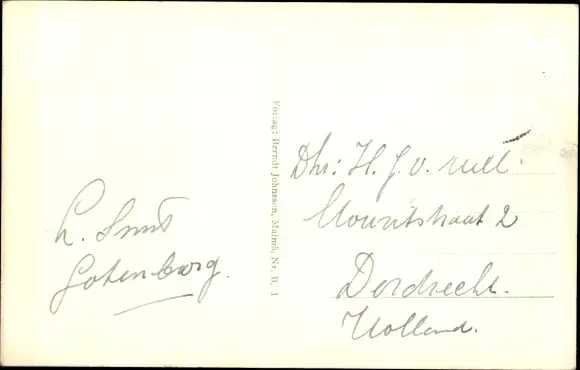 L. Smit
Gotenburg.
Förlag: Berndt Johnsson, Malmö. Nr. B. 1
Dhr: H. J. v.
Mauritsstraat 2
Dordrecht.
Holland.